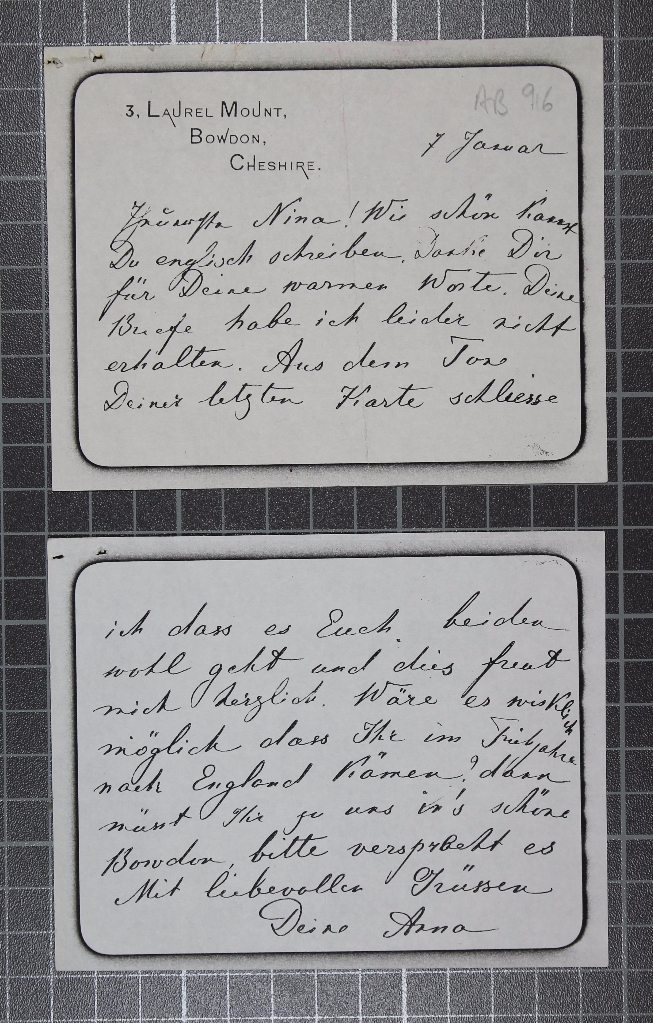 3, Laurel Mount,
Bowdon,
Cheshire.
AB 916
7 Januar
Nina! Wie schön kannst
Du englisch schreiben. Danke Dir
für Deine warmen Worte. Deine
Briefe habe ich leider nicht
erhalten. Aus dem Tone
Deiner letzten Karte schliesse
ich dass es Euch beiden
wohl geht und dies freut
mich herzlich. Wäre es wirklich
möglich dass Ihr im Frühjahre
nach England kämen? dann
müsst Ihr zu uns in's schöne
Bowdon, bitte versprecht es
Mit liebevollen Grüssen
Deine Anna